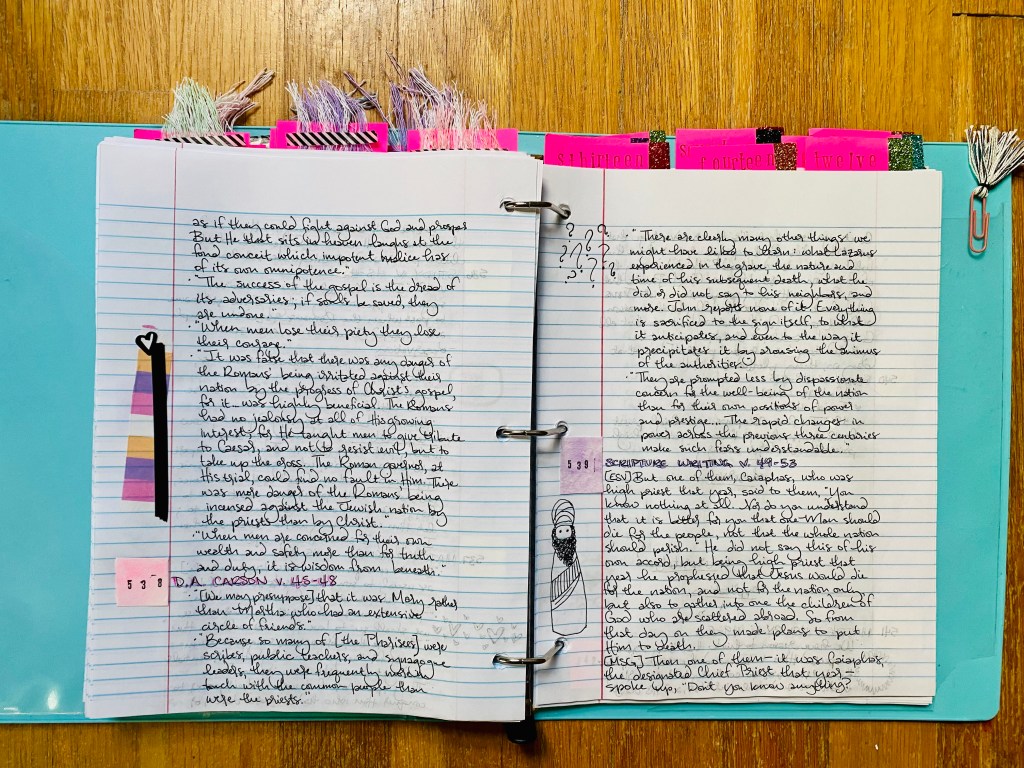 sthirteen
fourteen
twelve
as if they could fight against God and prosper
But He that sits in heaven laughs at the
fond conceit which impotent malice has
of its own omnipotence."
• "The success of the gospel is the dread of
its adversaries; if souls be saved, they
are undone."
• "When men lose their piety they lose
their courage."
• "It was false that there was any danger of
the Romans' being irritated against their
nation by the progress of Christ's gospel,
for it... was highly beneficial. The Romans
had no jealousy at all of His growing
interest; for He taught men to give tribute
to Caesar, and not to resist evil, but to
take up the cross. The Roman governor, at
His trial, could find no fault in Him. There
was more danger of the Romans' being
incensed against the Jewish nation by
the priests than by Christ."
• "When men are concerned for their own
wealth and safety more than for truth
and duty, it is wisdom from beneath."
538
D.A. CARSON v. 45-48
• "[We may presuppose] that it was Mary rather
than Martha who had an extensive
circle of friends."
• "Because so many of [the Pharisees] were
scribes, public teachers, and synagogue
leaders, they were frequently more in
touch with the common people than
were the priests.
? ? ? ? ? ? ? ? ? ?
• "There are clearly many other things we
might have liked to learn: what Lazarus
experienced in the grave, the nature and
time of his subsequent death, what he
did or did not say to his neighbors, and
more. John reports none of it. Everything
is sacrificed to the sign itself, to what
it anticipates, and even to the way it
precipitates it by arousing the animus
of the authorities.
• "They are prompted less by dispassionate
concern for the well-being of the nation
than for their own positions of power
and prestige... The rapid changes in
power across the previous three centuries
make such fears understandable."
539
SCRIPTURE WRITING v. 49-53
[ESV] But one of them, Caiaphas, who was
high priest that year, said to them, "You
know nothing at all. Nor do you understand
that it is better for you that one Man should
die for the people, not that the whole nation
should perish." He did not say this of his
own accord, but being high priest that
year he prophesied that Jesus would die
for the nation, and not for the nation only
but also to gather into one the children of
God who are scattered abroad. So from
that day on they made plans to put
Him to death.
[MSG] Then one of them—it was Caiaphas,
the designated Chief Priest that year—
spoke up, "Don't you know anything?